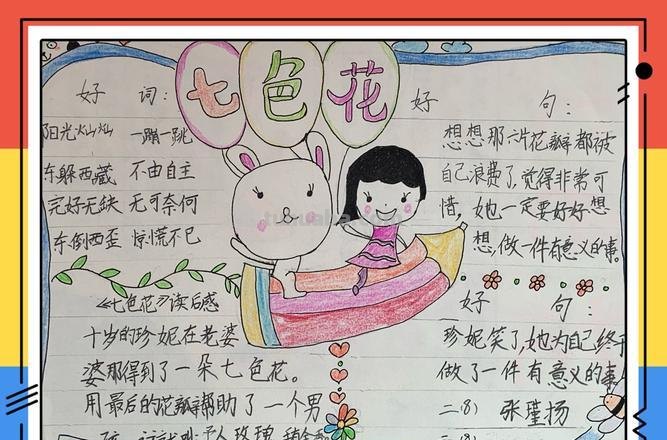 七色花
好 词：
阳光灿灿 一蹦一跳
东躲西藏 不由自主
完好无缺 无可奈何
东倒西歪 惊慌不已
《七色花》读后感
十岁的珍妮在老婆
婆那得到了一朵七色花。
用最后的花瓣帮助了一个男
好 句：
想想那六片花瓣都被
自己浪费了，觉得非常可
惜，她一定要好好想
想，做一件有意义的事。
好 句：
珍妮笑了，她为自己终于
做了一件有意义的事
二（8） 张瑾扬